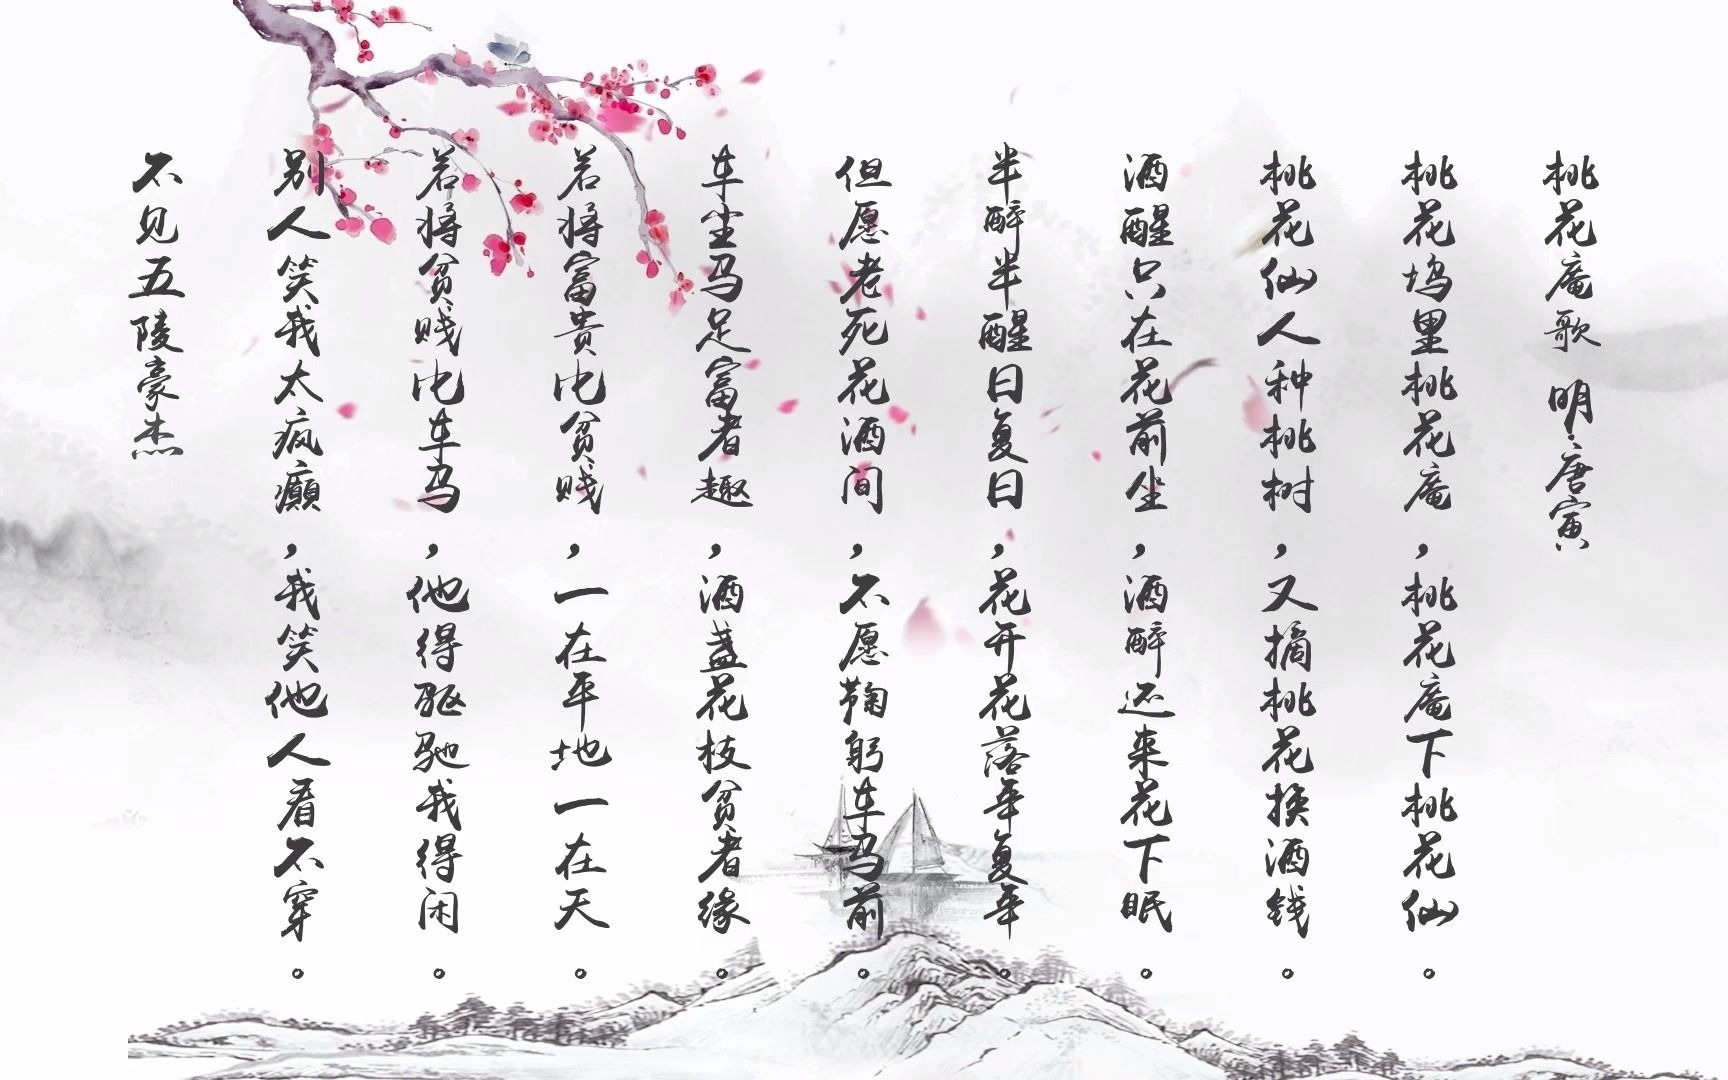 桃花庵歌 明·唐寅
桃花坞里桃花庵，桃花庵下桃花仙。
桃花仙人种桃树，又摘桃花换酒钱。
酒醒只在花前坐，酒醉还来花下眠。
半醉半醒日复日，花开花落年复年。
但愿老死花酒间，不愿鞠躬车马前。
车尘马足富者趣，酒盏花枝贫者缘。
若将富贵比贫贱，一在平地一在天。
若将贫贱比车马，他得驱驰我得闲。
别人笑我太疯癫，我笑他人看不穿。
不见五陵豪杰